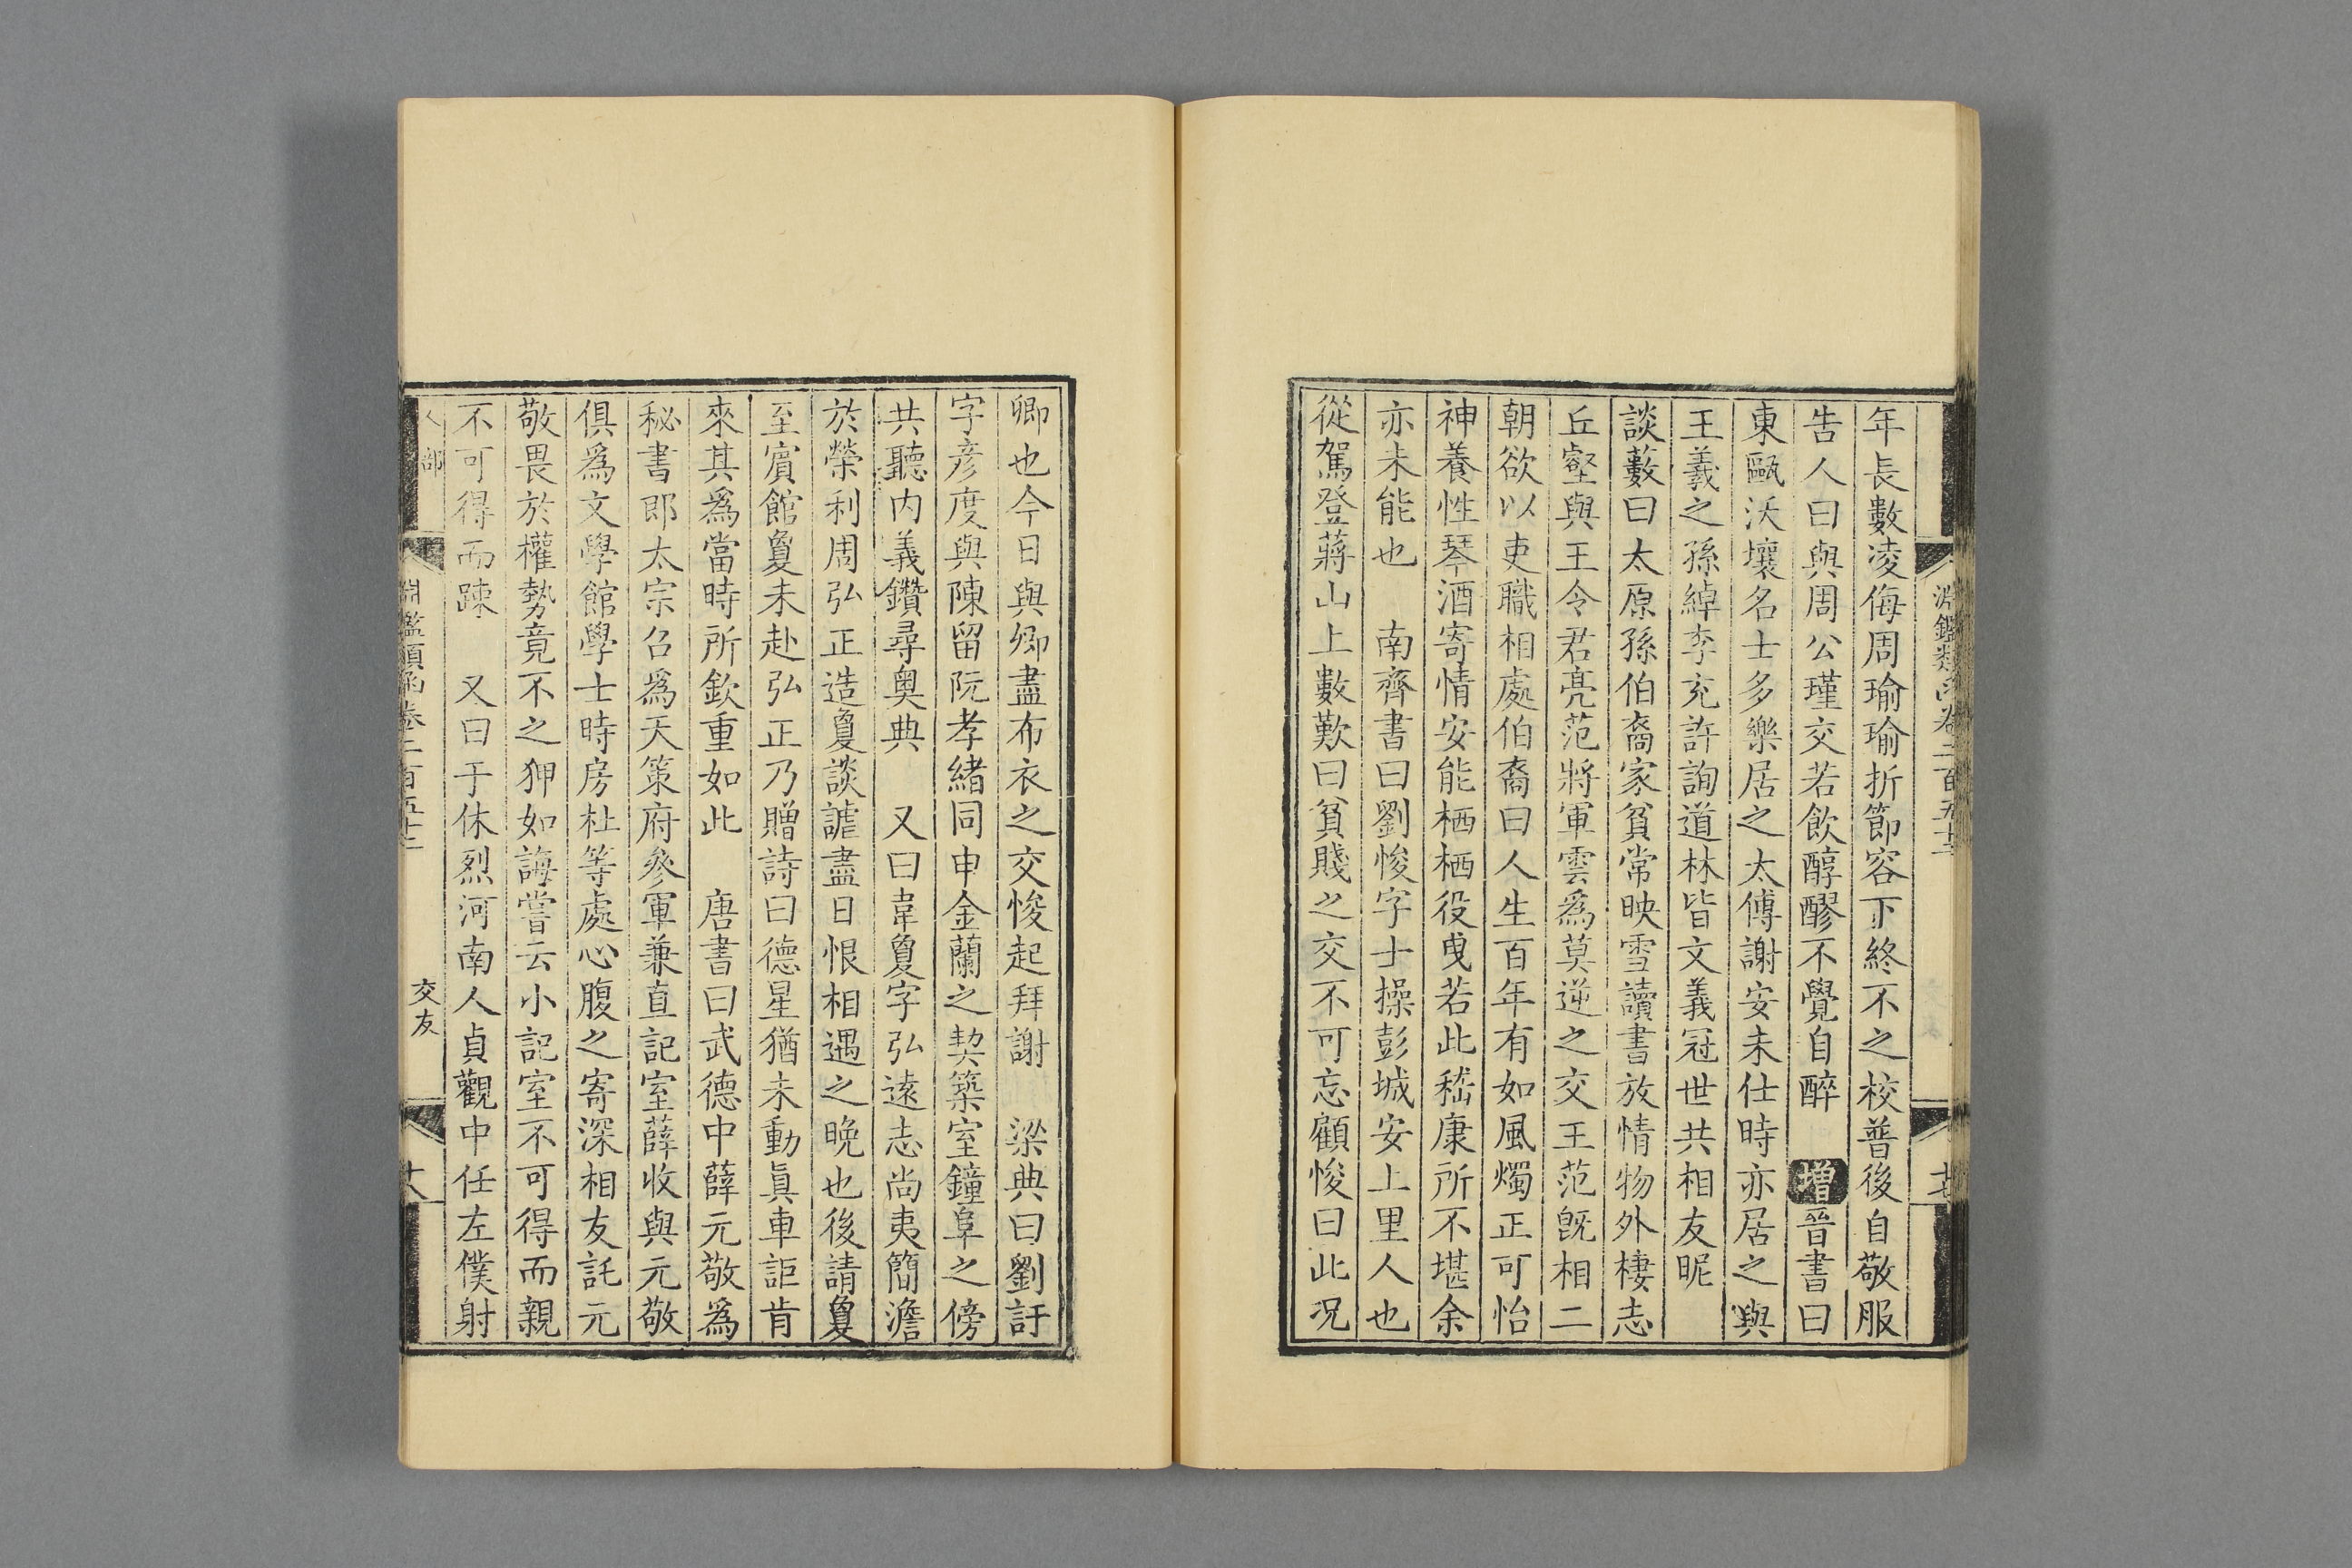 年長數凌侮周瑜瑜折節容下終不之校普後自敬服
告人曰與周公瑾交若飲醇醪不覺自醉　增晉書曰
東甌沃壤名士多樂居之太傅謝安未仕時亦居之與
王羲之孫綽李充許詢道林皆文義冠世共相友昵
談藪曰太原孫伯裔家貧常映雪讀書放情物外棲志
丘壑與王令君亮范將軍雲爲莫逆之交王范旣相二
朝欲以吏職相處伯裔曰人生百年有如風燭正可怡
神養性琴酒寄情安能栖栖役曵若此嵇康所不堪余
亦未能也　南齊書曰劉悛字士操彭城安上里人也
從駕登蔣山上數歎曰貧賤之交不可忘顧悛曰此况
卿也今日與卿盡布衣之交悛起拜謝　梁典曰劉訏
字彥度與陳留阮孝緒同申金蘭之契築室鐘阜之傍
共聽内義鑽尋奥典　又曰韋敻字弘遠志尚夷簡澹
於榮利周弘正造敻談謔盡日恨相遇之晚也後請敻
至賓館敻未赴弘正乃贈詩曰德星猶未動眞車詎肯
來其爲當時所欽重如此　唐書曰武德中薛元敬爲
秘書郎太宗召爲天策府叅軍兼直記室薛收與元敬
俱爲文學館學士時房杜等處心腹之寄深相友託元
敬畏於權勢竟不之狎如誨嘗云小記室不可得而親
不可得而踈　又曰于休烈河南人貞觀中任左僕射
人部　淵鑑類函卷二百五十二　交友　十八